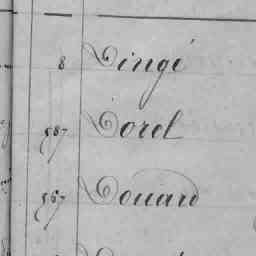 8 Dingé
587 Dorel
567 Douard